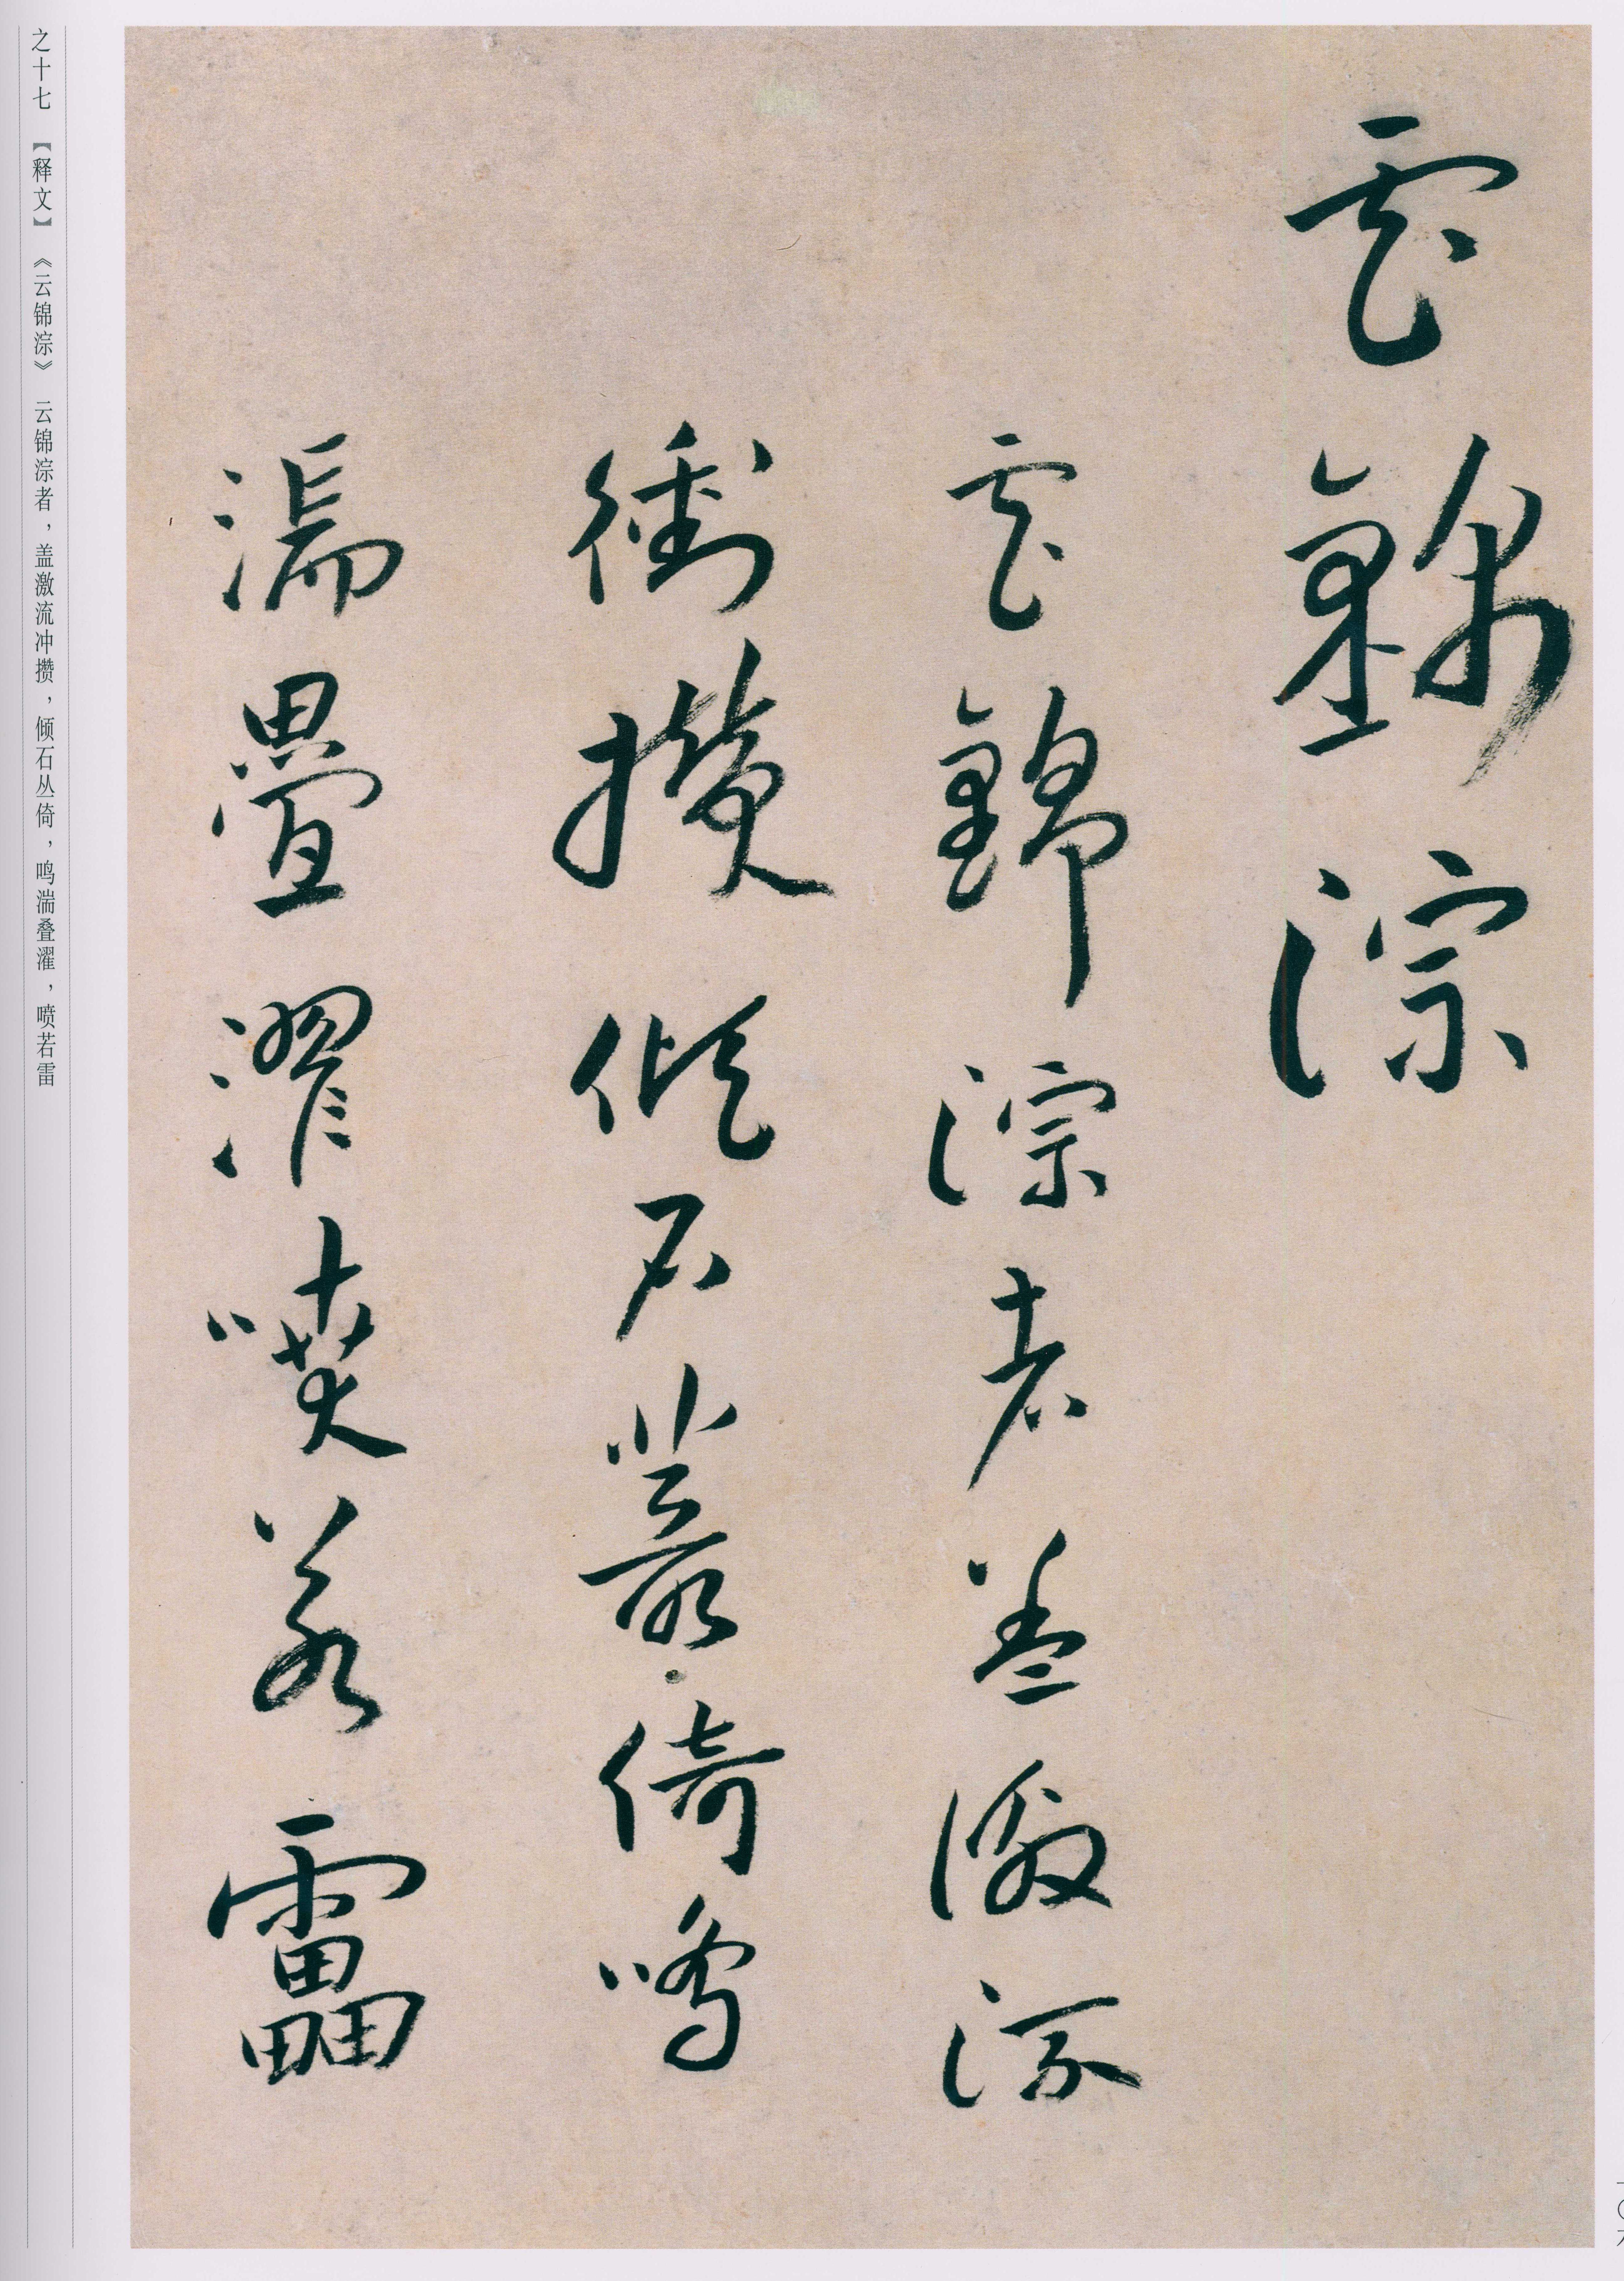 雲錦淙
雲錦淙者蓋激流
衝攢傾石叢倚鳴
湍疊濯噴若靁
之十七 【释文】 《云锦淙》 云锦淙者，盖激流冲攒，倾石丛倚，鸣湍叠濯，喷若雷